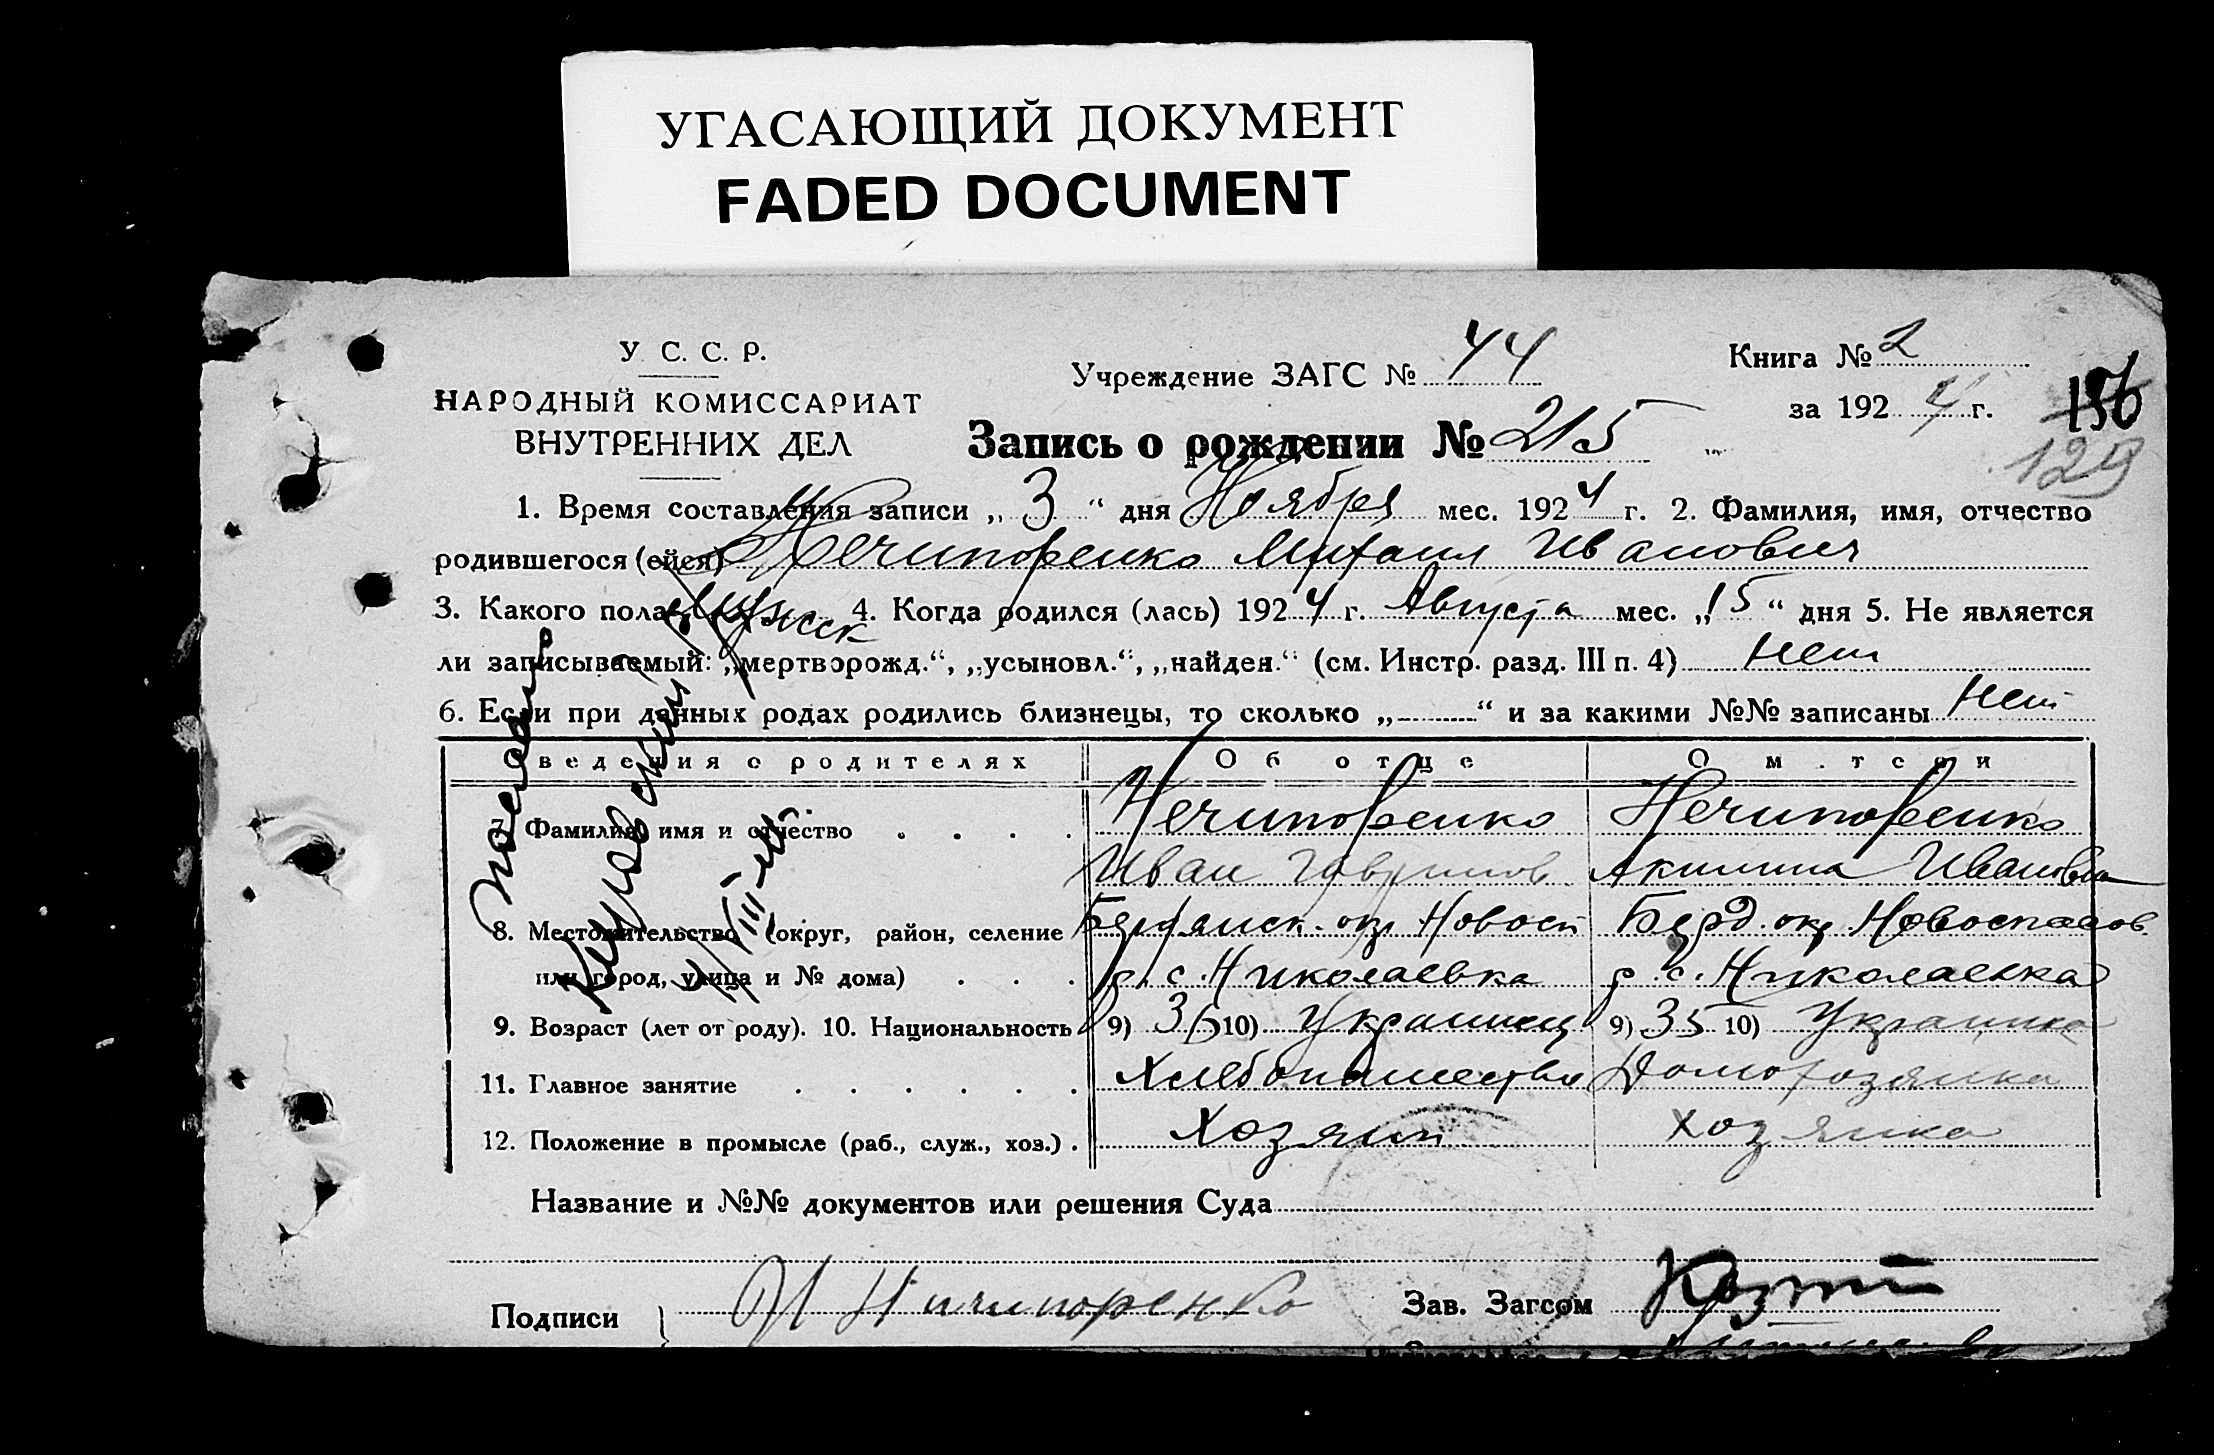 УГАСАЮЩИЙ ДОКУМЕНТ
FADED DOCUMENT
У. С. С. Р.
НАРОДНЫЙ КОМИССАРИАТ
ВНУТРЕННИХ ДЕЛ
Учреждение ЗАГС № 44
Книга № 2
за 1924 г.
156
129
Запись о рождении № 215
1. Время составления записи „ 3 “ дня Ноября мес. 1924 г. 2. Фамилия, имя, отчество
родившегося (ейся) Нечипоренко Михаил Иванович
3. Какого пола Мужск 4. Когда родился (лась) 1924 г. Августа мес. „15“ дня 5. Не является
ли записываемый: „мертворожд.“, „усыновл.“, „найден.“ (см. Инстр. разд. III п. 4) Нет
6. Если при данных родах родились близнецы, то сколько „ “ и за какими №№ записаны Нет
Сведения о родителях Об отце О матери
7. Фамилия, имя и отчество Нечипоренко Нечипоренко
Иван Акилина Ивановна
8. Местожительство (округ, район, селение Бердянск. окр Новосп Берд. окр Новоспасов.
или город, улица и № дома) р. с. Николаевка р. с. Николаевка
9. Возраст (лет от роду). 10. Национальность 9) 35 10) Украинец 9) 35 10) Украинка
11. Главное занятие Хлебопашество Домохозяйка
12. Положение в промысле (раб., служ., хоз.) Хозяин Хозяйка
Название и №№ документов или решения Суда
Подписи И Ничипоренко Зав. Загсом